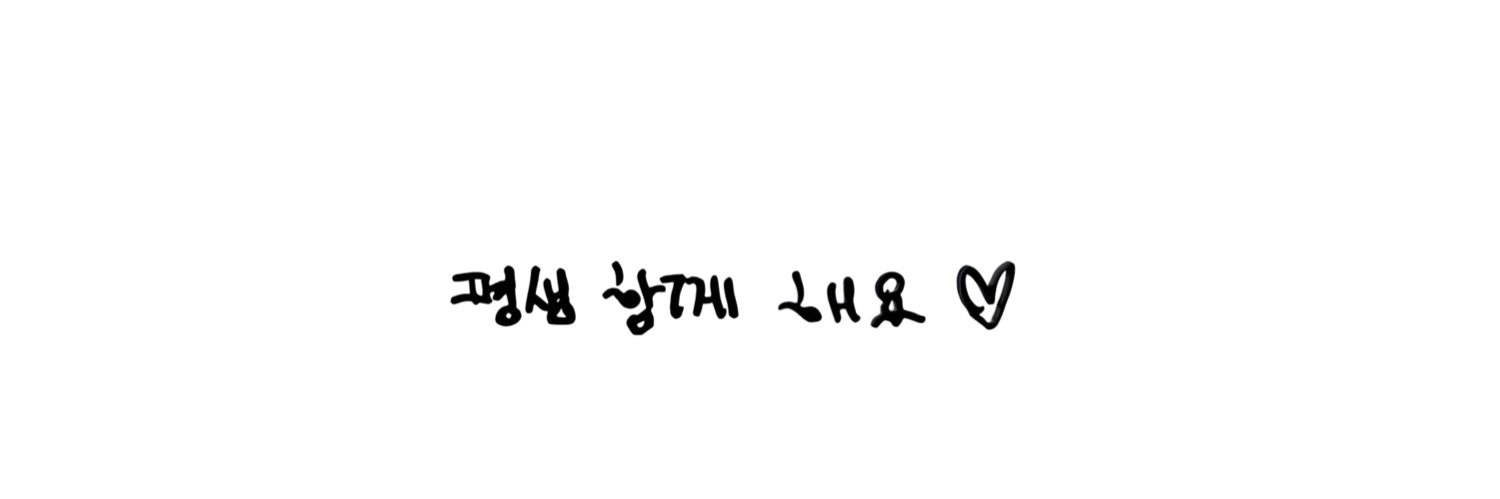 평생 함께 해요 ♡